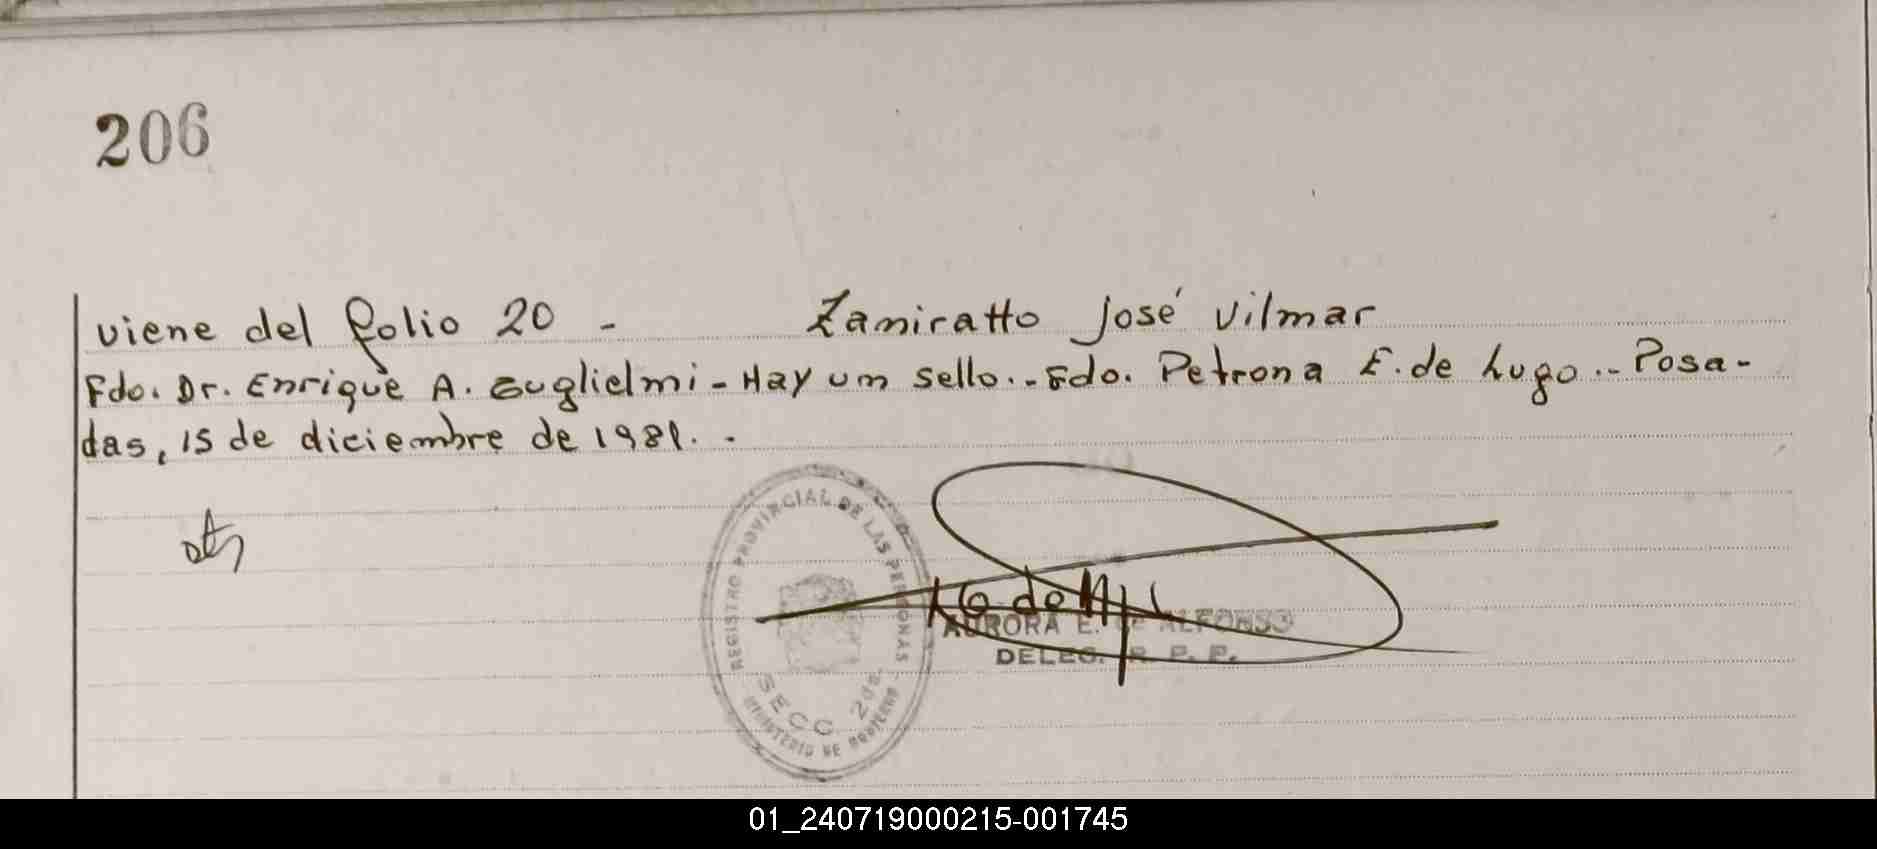 206
viene del folio 20 - Zamiratto José Vilmar
Fdo. Dr. Enrique A. Guglielmi - Hay um sello.- Fdo. Petrona E. de Lugo.- Posa-
das, 15 de diciembre de 1981. -
REGISTRO PROVINCIAL DE LAS PERSONAS
SECC. 2da.
MINISTERIO DE GOBIERNO
AURORA E. de ALFONSO
DELEG. R. P. P.
01_240719000215-001745